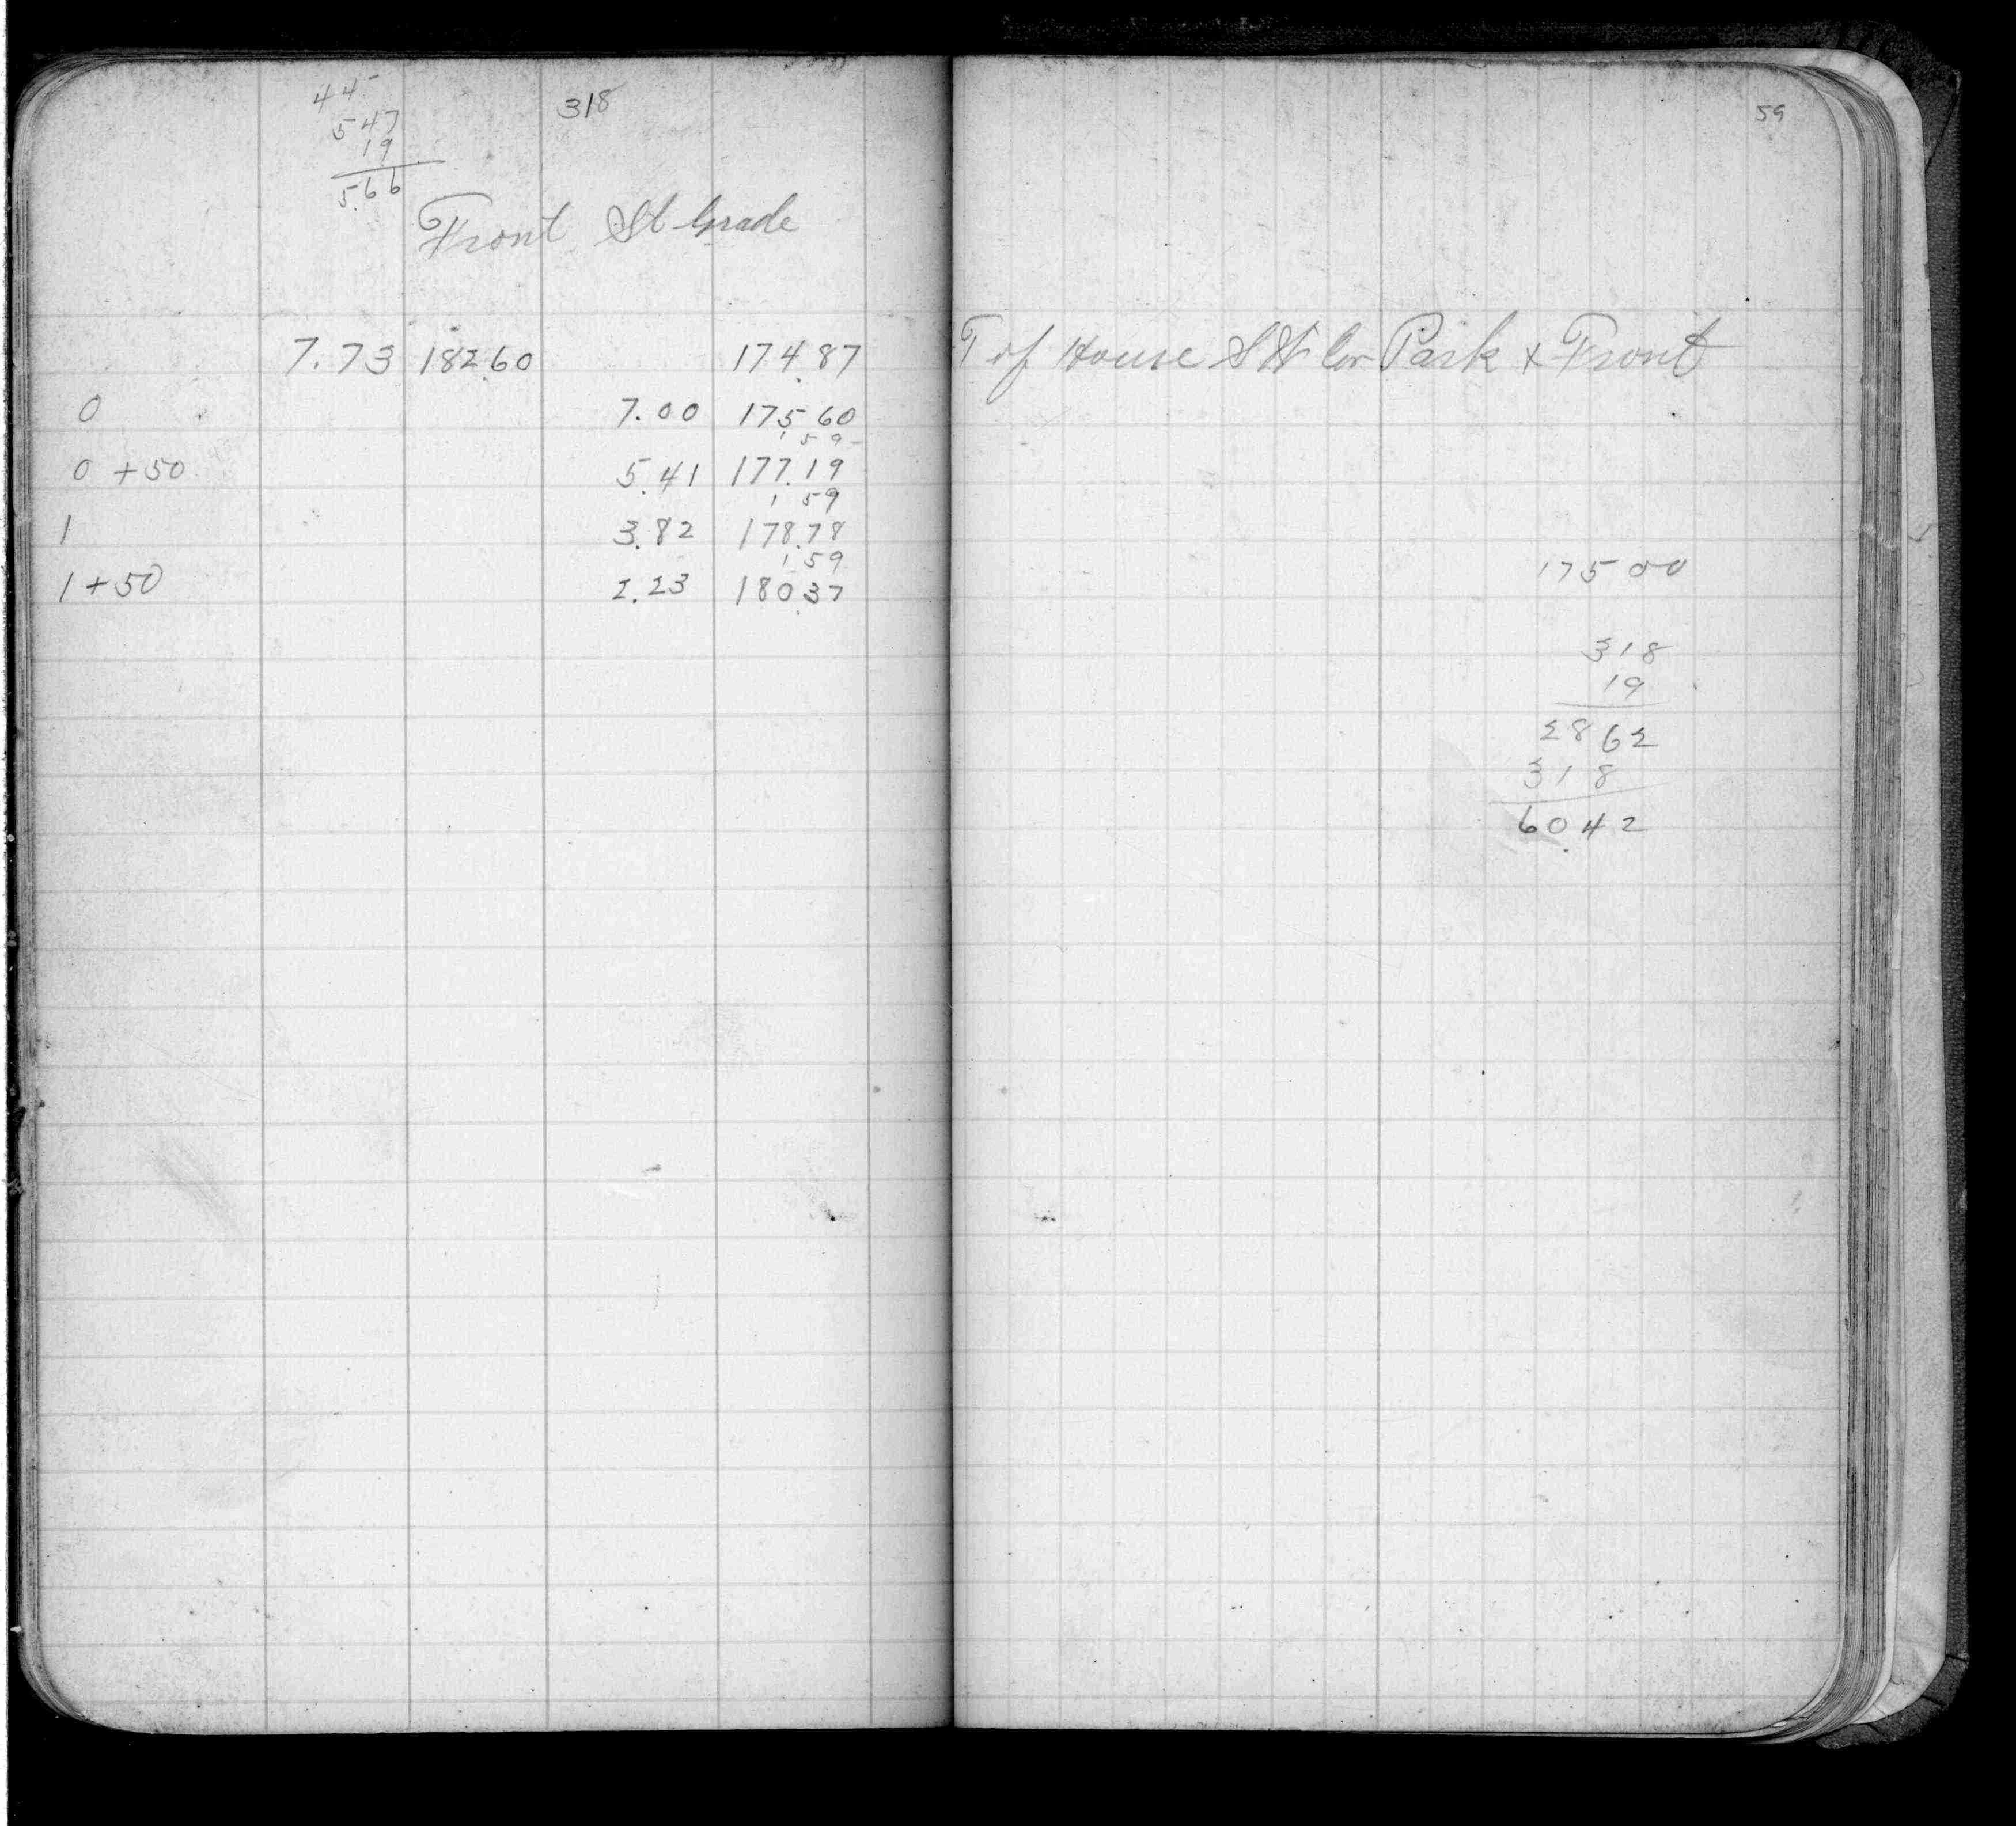 44
547
19
5.66
318
Front St Grade
7.73 182.60 174.87
0 7.00 175.60
1 59
0 +50 5.41 177.19
1 59
1 3.82 178.78
1 59
1+50 2.23 180.37
59
T of House S W Cor Park & Front
175 00
318
19
2862
318
60.42